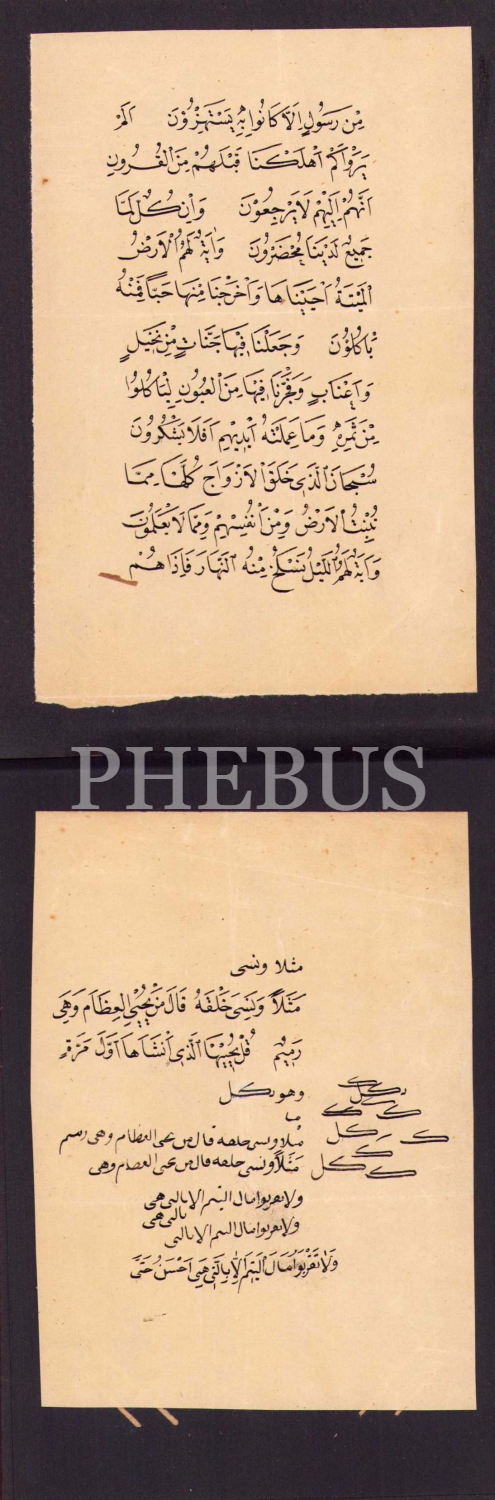 مِنْ رَسُولٍ اِلَّا كَانُوا بِهٖ يَسْتَهْزِؤُنَ اَلَمْ
يَرَوْا كَمْ اَهْلَكْنَا قَبْلَهُمْ مِنَ الْقُرُونِ
اَنَّهُمْ اِلَيْهِمْ لَا يَرْجِعُونَ وَاِنْ كُلٌّ لَمَّا
جَمِيعٌ لَدَيْنَا مُحْضَرُونَ وَاٰيَةٌ لَهُمُ الْاَرْضُ
الْمَيْتَةُ اَحْيَيْنَاهَا وَاَخْرَجْنَا مِنْهَا حَبًّا فَمِنْهُ
يَاْكُلُونَ وَجَعَلْنَا فِيهَا جَنَّاتٍ مِنْ نَخِيلٍ
وَاَعْنَابٍ وَفَجَّرْنَا فِيهَا مِنَ الْعُيُونِ لِيَاْكُلُوا
مِنْ ثَمَرِهٖ وَمَا عَمِلَتْهُ اَيْدِيهِمْ اَفَلَا يَشْكُرُونَ
سُبْحَانَ الَّذِي خَلَقَ الْاَزْوَاجَ كُلَّهَا مِمَّا
تُنْبِتُ الْاَرْضُ وَمِنْ اَنْفُسِهِمْ وَمِمَّا لَا يَعْلَمُونَ
وَاٰيَةٌ لَهُمُ اللَّيْلُ نَسْلَخُ مِنْهُ النَّهَارَ فَاِذَا هُمْ
PHEBUS
مثلا ونسى
مَثَلًا وَنَسِيَ خَلْقَهُ قَالَ مَنْ يُحْيِي الْعِظَامَ وَهِيَ
رَمِيمٌ قُلْ يُحْيِيهَا الَّذِي اَنْشَاَهَا اَوَّلَ مَرَّةٍ
وهو بكل
مثلا ونسى خلقه قال من يحى العظام وهى رميم
مَثَلًا ونسى خلقه قال من يحى العظام وهى
ولا تقربوا مال اليتيم الا بالتى هى
بالتى هى
ولا تقربوا مال اليتيم الا بالتى
وَلَا تَقْرَبُوا مَالَ الْيَتِيمِ اِلَّا بِالَّتِي هِيَ اَحْسَنُ حَتّٰى